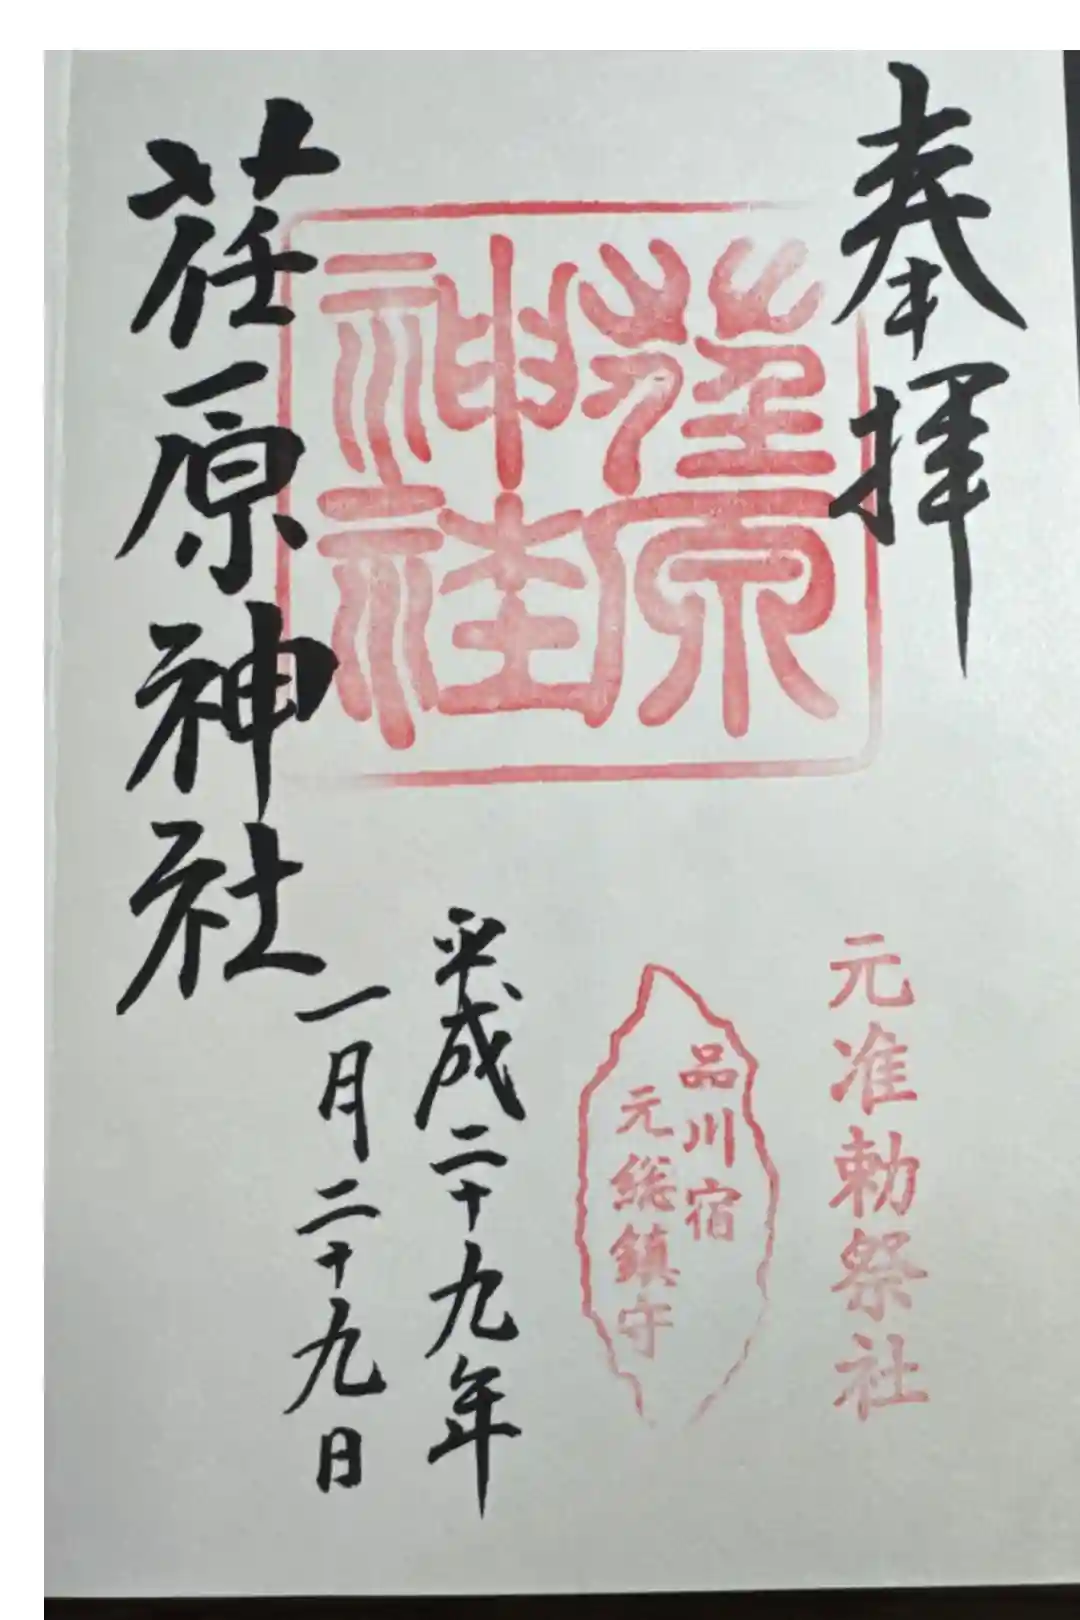 奉拝
元准勅祭社
荏原
神社
品川宿
元総鎮守
平成二十九年
一月二十九日
荏原神社